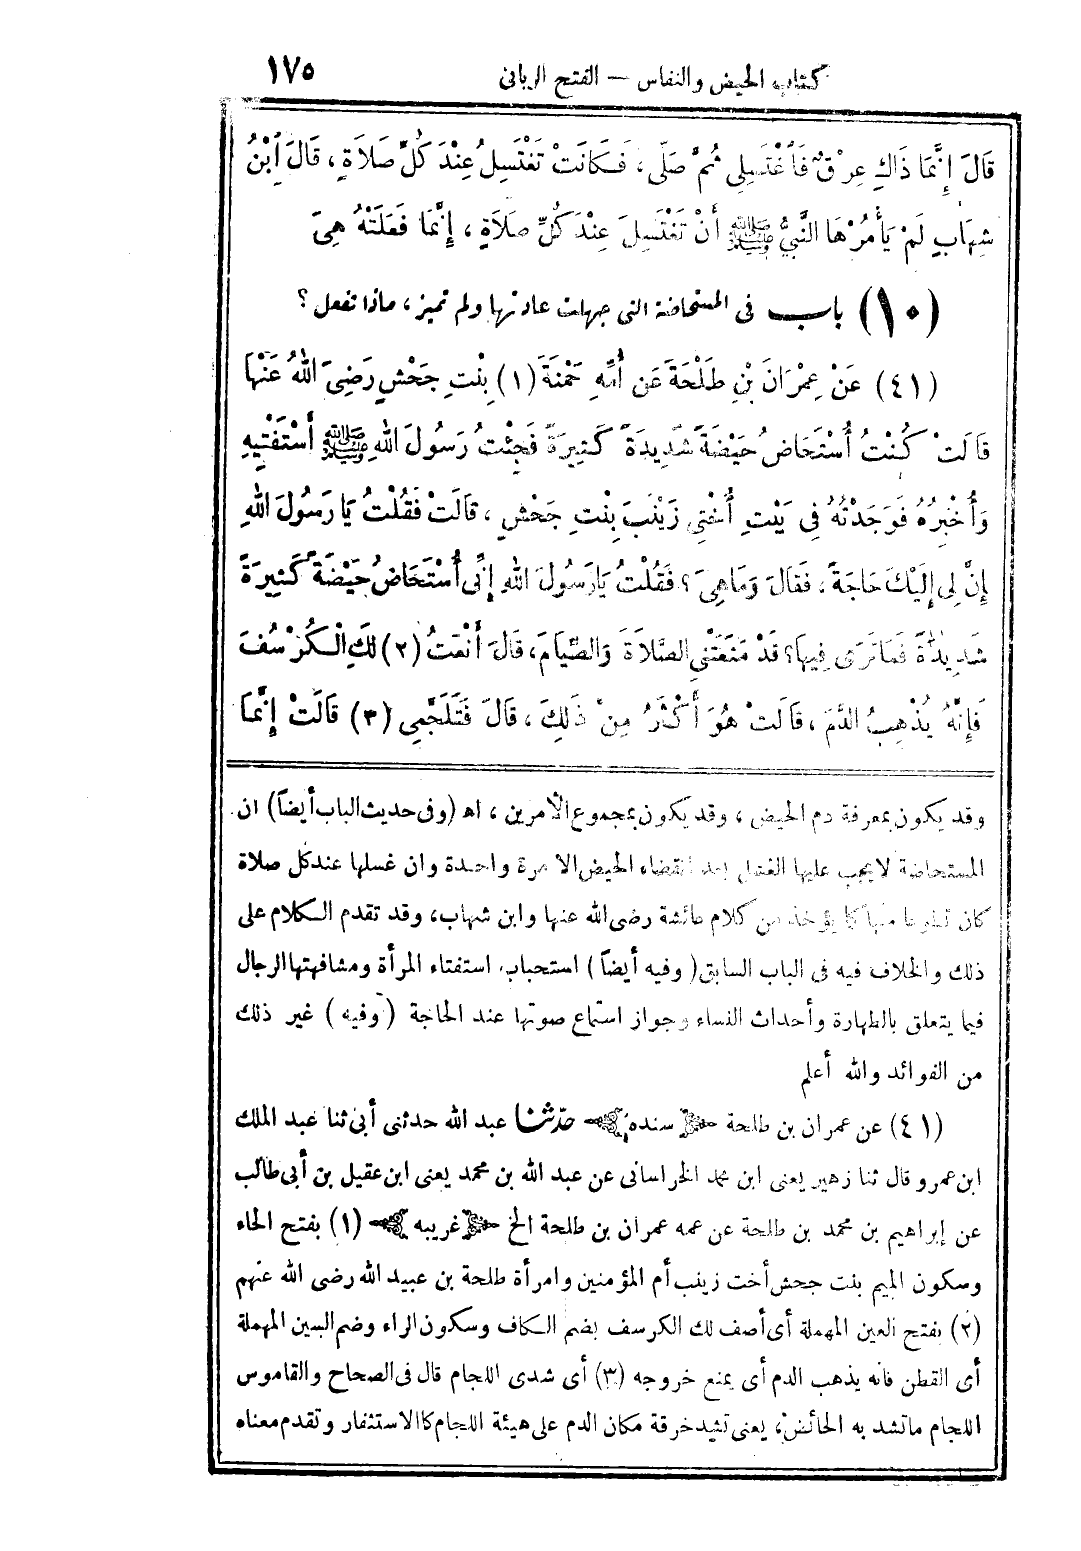 كتاب الحيض والنفاس — الفتح الربانى ١٧٥
قَالَ إِنَّمَا ذَاكِ عِرْقٌ فَاُغْتَسِلِى ثُمَّ صَلِّى، فَكَانَتْ تَغْتَسِلُ عِنْدَ كُلِّ صَلَاةٍ، قَالَ ابْنُ
شِهَابٍ لَمْ يَأْمُرْهَا النَّبِيُّ ﷺ أَنْ تَغْتَسِلَ عِنْدَ كُلِّ صَلَاةٍ، إِنَّمَا فَعَلَتْهُ هِىَ
(١٠) باب فى المستحاضة التى جهلت عادتها ولم تميز، ماذا تفعل؟
(٤١) عَنْ عِمْرَانَ بْنِ طَلْحَةَ عَنْ أُمِّهِ حَمْنَةَ (١) بِنْتِ جَحْشٍ رَضِىَ اللهُ عَنْهَا
قَالَتْ كُنْتُ أُسْتَحَاضُ حَيْضَةً شَدِيدَةً كَثِيرَةً فَجِئْتُ رَسُولَ اللهِ ﷺ أَسْتَفْتِيهِ
وَأُخْبِرُهُ فَوَجَدْتُهُ فِى بَيْتِ أُخْتِى زَيْنَبَ بِنْتِ جَحْشٍ، قَالَتْ فَقُلْتُ يَا رَسُولَ اللهِ
إِنَّ لِى إِلَيْكَ حَاجَةً، فَقَالَ وَمَاهِىَ؟ فَقُلْتُ يَارَسُولَ اللهِ إِنِّى أُسْتَحَاضُ حَيْضَةً كَثِيرَةً
شَدِيدَةً فَمَا تَرَى فِيهَا؟ قَدْ مَنَعَتْنِى الصَّلَاةَ وَالصِّيَامَ، قَالَ أَنْعَتُ (٢) لَكِ الْكُرْسُفَ
فَإِنَّهُ يُذْهِبُ الدَّمَ، قَالَتْ هُوَ أَكْثَرُ مِنْ ذَلِكَ، قَالَ فَتَلَجَّمِى (٣) قَالَتْ إِنَّمَا
وقد يكون بمعرفة دم الحيض، وقد يكون بمجموع الأمرين، اه (وفى حديث الباب أيضاً) ان
المستحاضة لايجب عليها الغسل بعد انقضاء الحيض الا مرة واحدة وان غسلها عندكل صلاة
كان تطوعا منها كما يؤخذ من كلام عائشة رضى الله عنها وابن شهاب، وقد تقدم الكلام على
ذلك والخلاف فيه فى الباب السابق (وفيه أيضاً) استحباب استفتاء المرأة ومشافهتها الرجال
فيما يتعلق بالطهارة وأحداث النساء وجواز استماع صوتها عند الحاجة (وفيه) غير ذلك
من الفوائد والله أعلم
(٤١) عن عمران بن طلحة سنده حدثنا عبد الله حدثنى أبى ثنا عبد الملك
ابن عمرو قال ثنا زهير يعنى ابن محمد الخراسانى عن عبد الله بن محمد يعنى ابن عقيل بن أبى طالب
عن إبراهيم بن محمد بن طلحة عن عمه عمران بن طلحة الخ غريبه (١) بفتح الحاء
وسكون الميم بنت جحش أخت زينب أم المؤمنين وامرأة طلحة بن عبيد الله رضى الله عنهم
(٢) بفتح العين المهملة أى أصف لك الكرسف بضم الكاف وسكون الراء وضم السين المهملة
أى القطن فانه يذهب الدم أى يمنع خروجه (٣) أى شدى اللجام قال فى الصحاح والقاموس
اللجام ماتشد به الحائض، يعنى تشيد خرقة مكان الدم على هيئة اللجام كالاستثفار وتقدم معناه